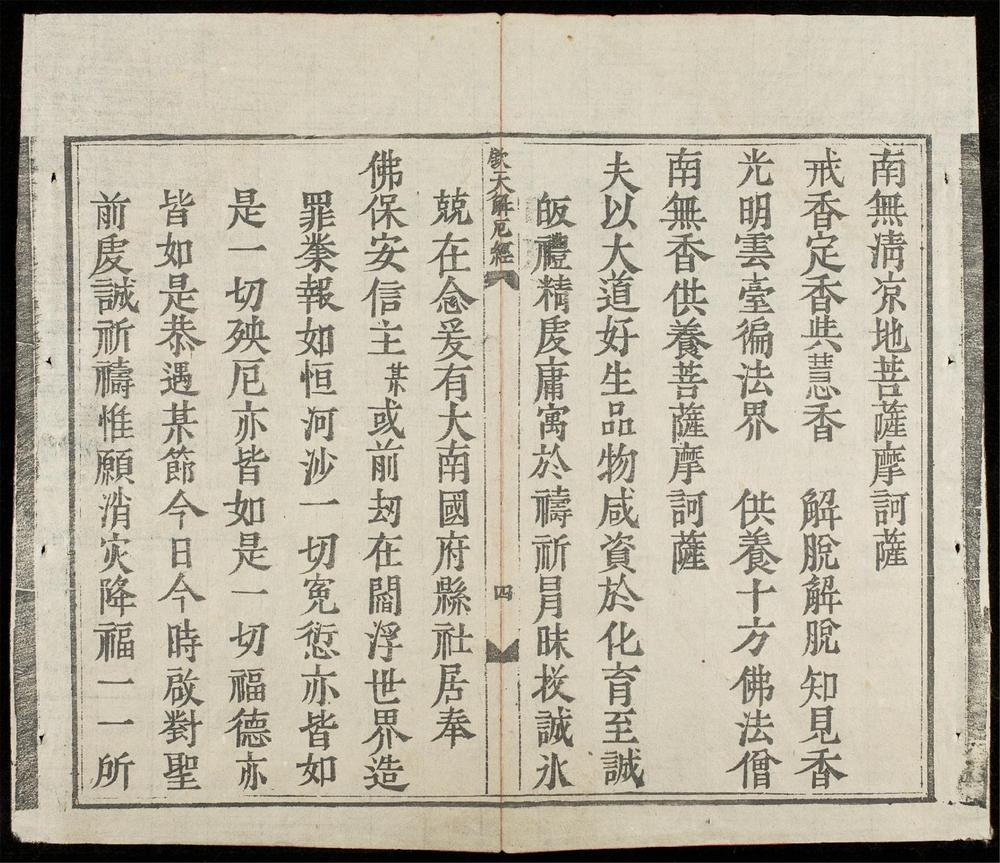 南無淸凉地菩薩摩訶薩
戒香定香與慧香　解脫解脫知見香
光明雲臺徧法界　供養十方佛法僧
南無香供養菩薩摩訶薩
夫以大道好生品物咸資於化育至誠
皈禮精虔庸寓於禱祈冐昧投誠氷
欽天解厄經
四
兢在念爰有大南國府縣社居奉
佛保安信主某或前刼在閻浮世界造
罪業報如恒河沙一切寃愆亦皆如
是一切殃厄亦皆如是一切福德亦
皆如是恭遇某節今日今時啟對聖
前虔誠祈禱惟願消灾降福一一所